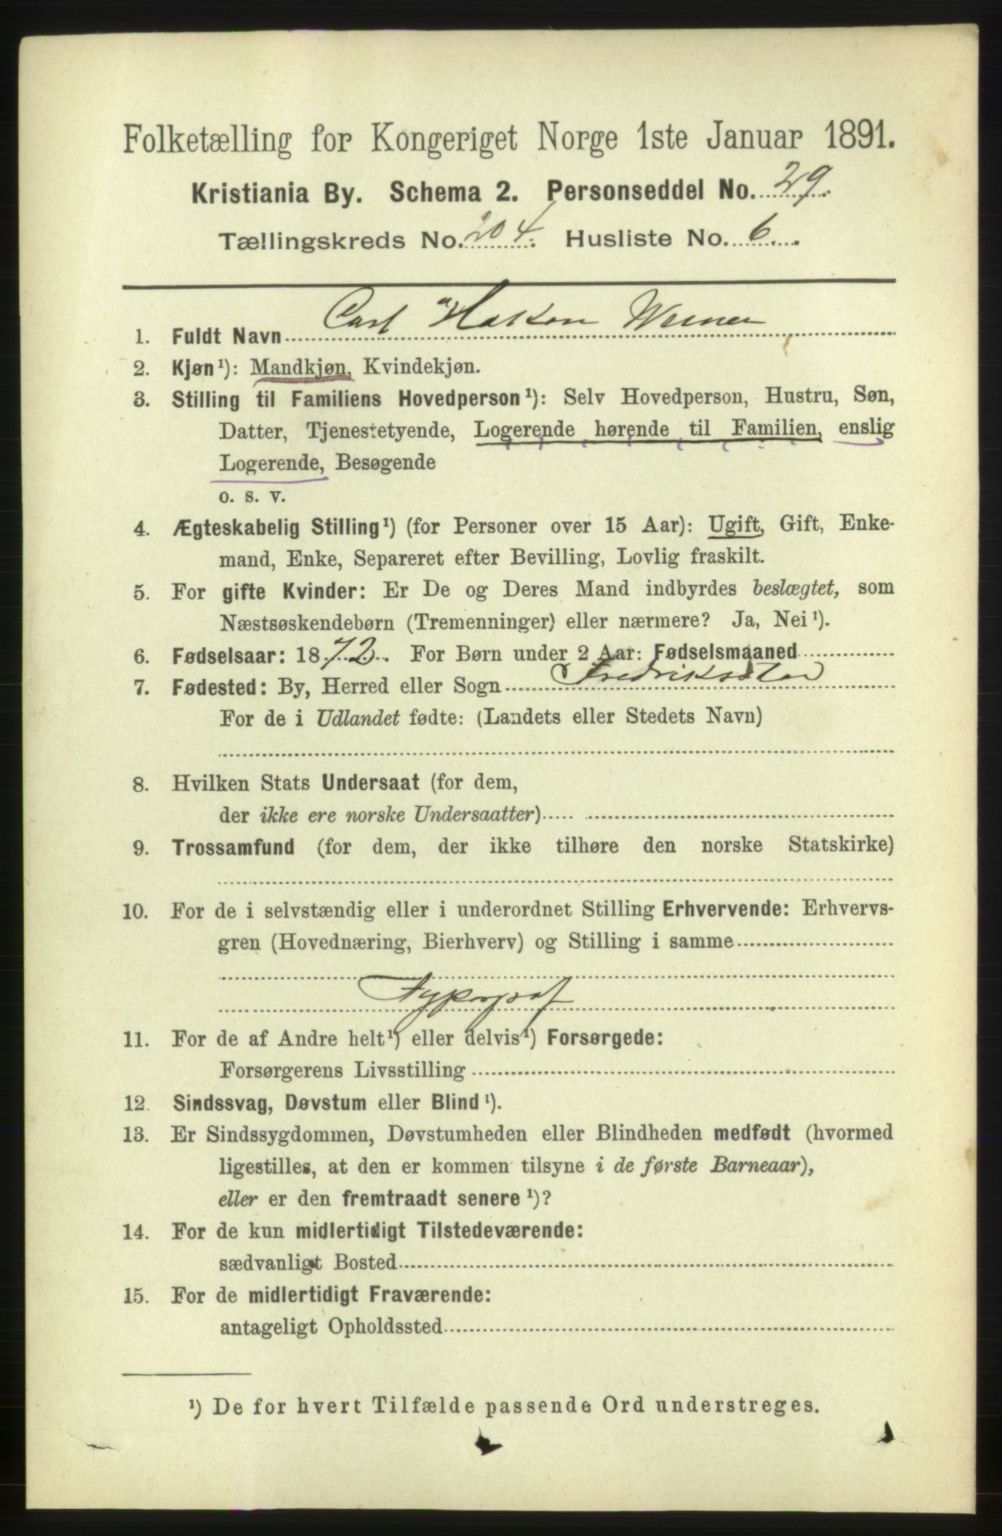 Folketælling for Kongeriget Norge 1ste Januar 1891.
Kristiania By. Schema 2. Personseddel No. 29.
Tællingskreds No. 204. Husliste No. 6.
1. Fuldt Navn Carl Hakon Werner
2. Kjøn¹): Mandkjøn, Kvindekjøn.
3. Stilling til Familiens Hovedperson¹): Selv Hovedperson, Hustru, Søn,
Datter, Tjenestetyende, Logerende hørende til Familien, enslig
Logerende, Besøgende
o. s. v.
4. Ægteskabelig Stilling¹) (for Personer over 15 Aar): Ugift, Gift, Enke-
mand, Enke, Separeret efter Bevilling, Lovlig fraskilt.
5. For gifte Kvinder: Er De og Deres Mand indbyrdes beslægtet, som
Næstsøskendebørn (Tremenninger) eller nærmere? Ja, Nei¹).
6. Fødselsaar: 1872. For Børn under 2 Aar: Fødselsmaaned
7. Fødested: By, Herred eller Sogn Fredrikstad
For de i Udlandet fødte: (Landets eller Stedets Navn)
8. Hvilken Stats Undersaat (for dem,
der ikke ere norske Undersaatter)
9. Trossamfund (for dem, der ikke tilhøre den norske Statskirke)
10. For de i selvstændig eller i underordnet Stilling Erhvervende: Erhvervs-
gren (Hovednæring, Bierhverv) og Stilling i samme
Typograf
11. For de af Andre helt¹) eller delvis¹) Forsørgede:
Forsørgerens Livsstilling
12. Sindssvag, Døvstum eller Blind¹).
13. Er Sindssygdommen, Døvstumheden eller Blindheden medfødt (hvormed
ligestilles, at den er kommen tilsyne i de første Barneaar),
eller er den fremtraadt senere¹)?
14. For de kun midlertidigt Tilstedeværende:
sædvanligt Bosted
15. For de midlertidigt Fraværende:
antageligt Opholdssted
¹) De for hvert Tilfælde passende Ord understreges.